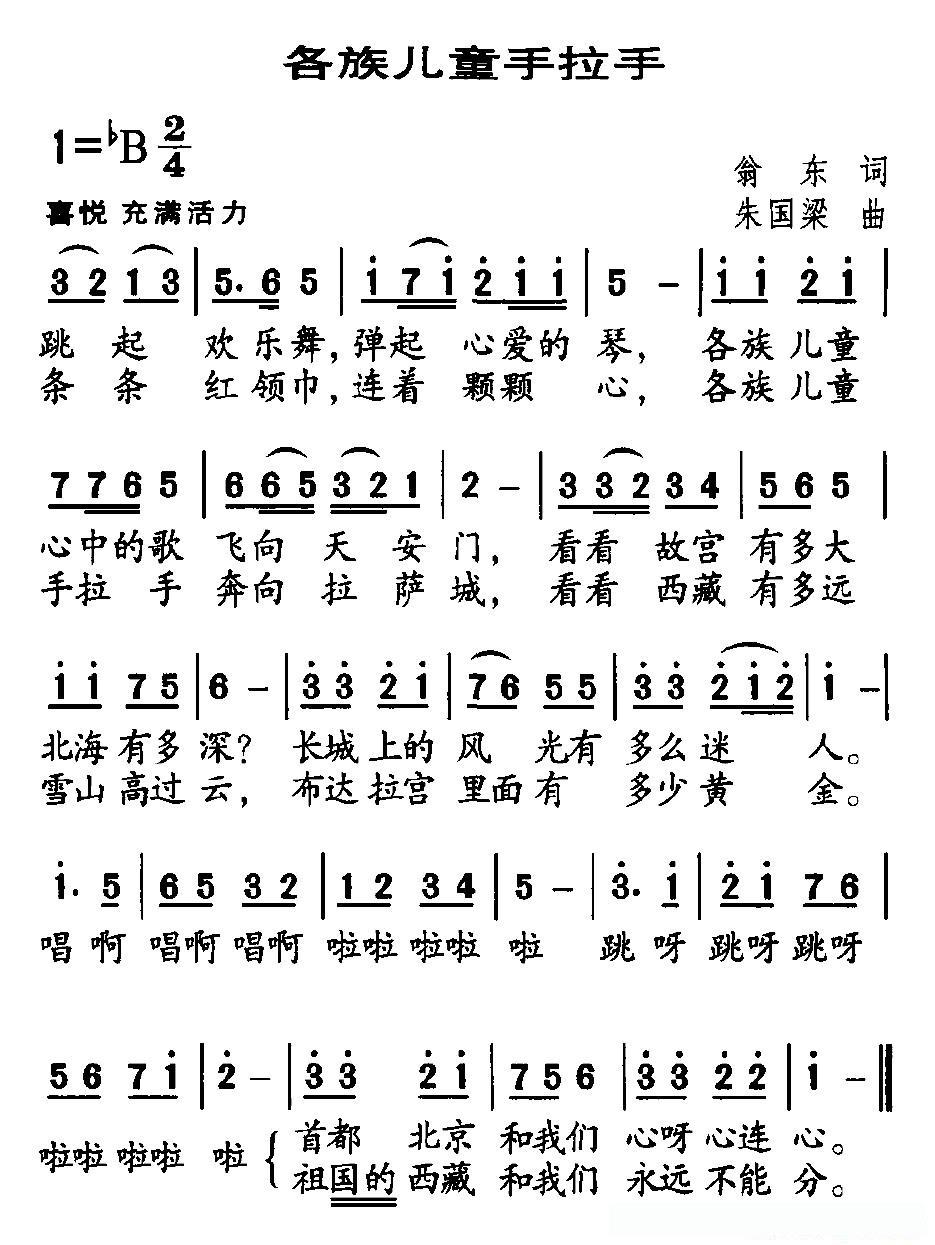 各族儿童手拉手
1=♭B 2/4
翁 东 词
喜悦 充满活力
朱国梁 曲
3 2 1 3 | 5. 6 5 | i 7 i 2̇ i i | 5 - | i i 2̇ i |
跳 起 欢 乐 舞, 弹起 心爱的 琴, 各族 儿童
条 条 红 领 巾, 连着 颗颗 心, 各族 儿童
7 7 6 5 | 6 6 5 3 2 1 | 2 - | 3 3 2 3 4 | 5 6 5 |
心中的歌 飞向 天 安 门, 看看 故宫 有多大
手拉 手 奔向 拉 萨 城, 看看 西藏 有多远
i i 7 5 | 6 - | 3̇ 3̇ 2̇ i | 7 6 5 5 | 3̇ 3̇ 2̇ i 2̇ | i - |
北海 有多 深? 长城 上的 风 光有 多么 迷 人。
雪山 高过 云, 布达 拉宫 里面 有 多少 黄 金。
i. 5 | 6 5 3 2 | 1 2 3 4 | 5 - | 3̇. i | 2̇ i 7 6 |
唱 啊 唱啊 唱啊 啦啦 啦啦 啦 跳 呀 跳呀 跳呀
5 6 7 i | 2̇ - | 3̇ 3̇ 2̇ i | 7 5 6 | 3̇ 3̇ 2̇ 2̇ | i - ‖
啦啦 啦啦 啦 { 首都 北京 和我们 心呀 心连 心。
祖国的 西藏 和我们 永远 不能 分。